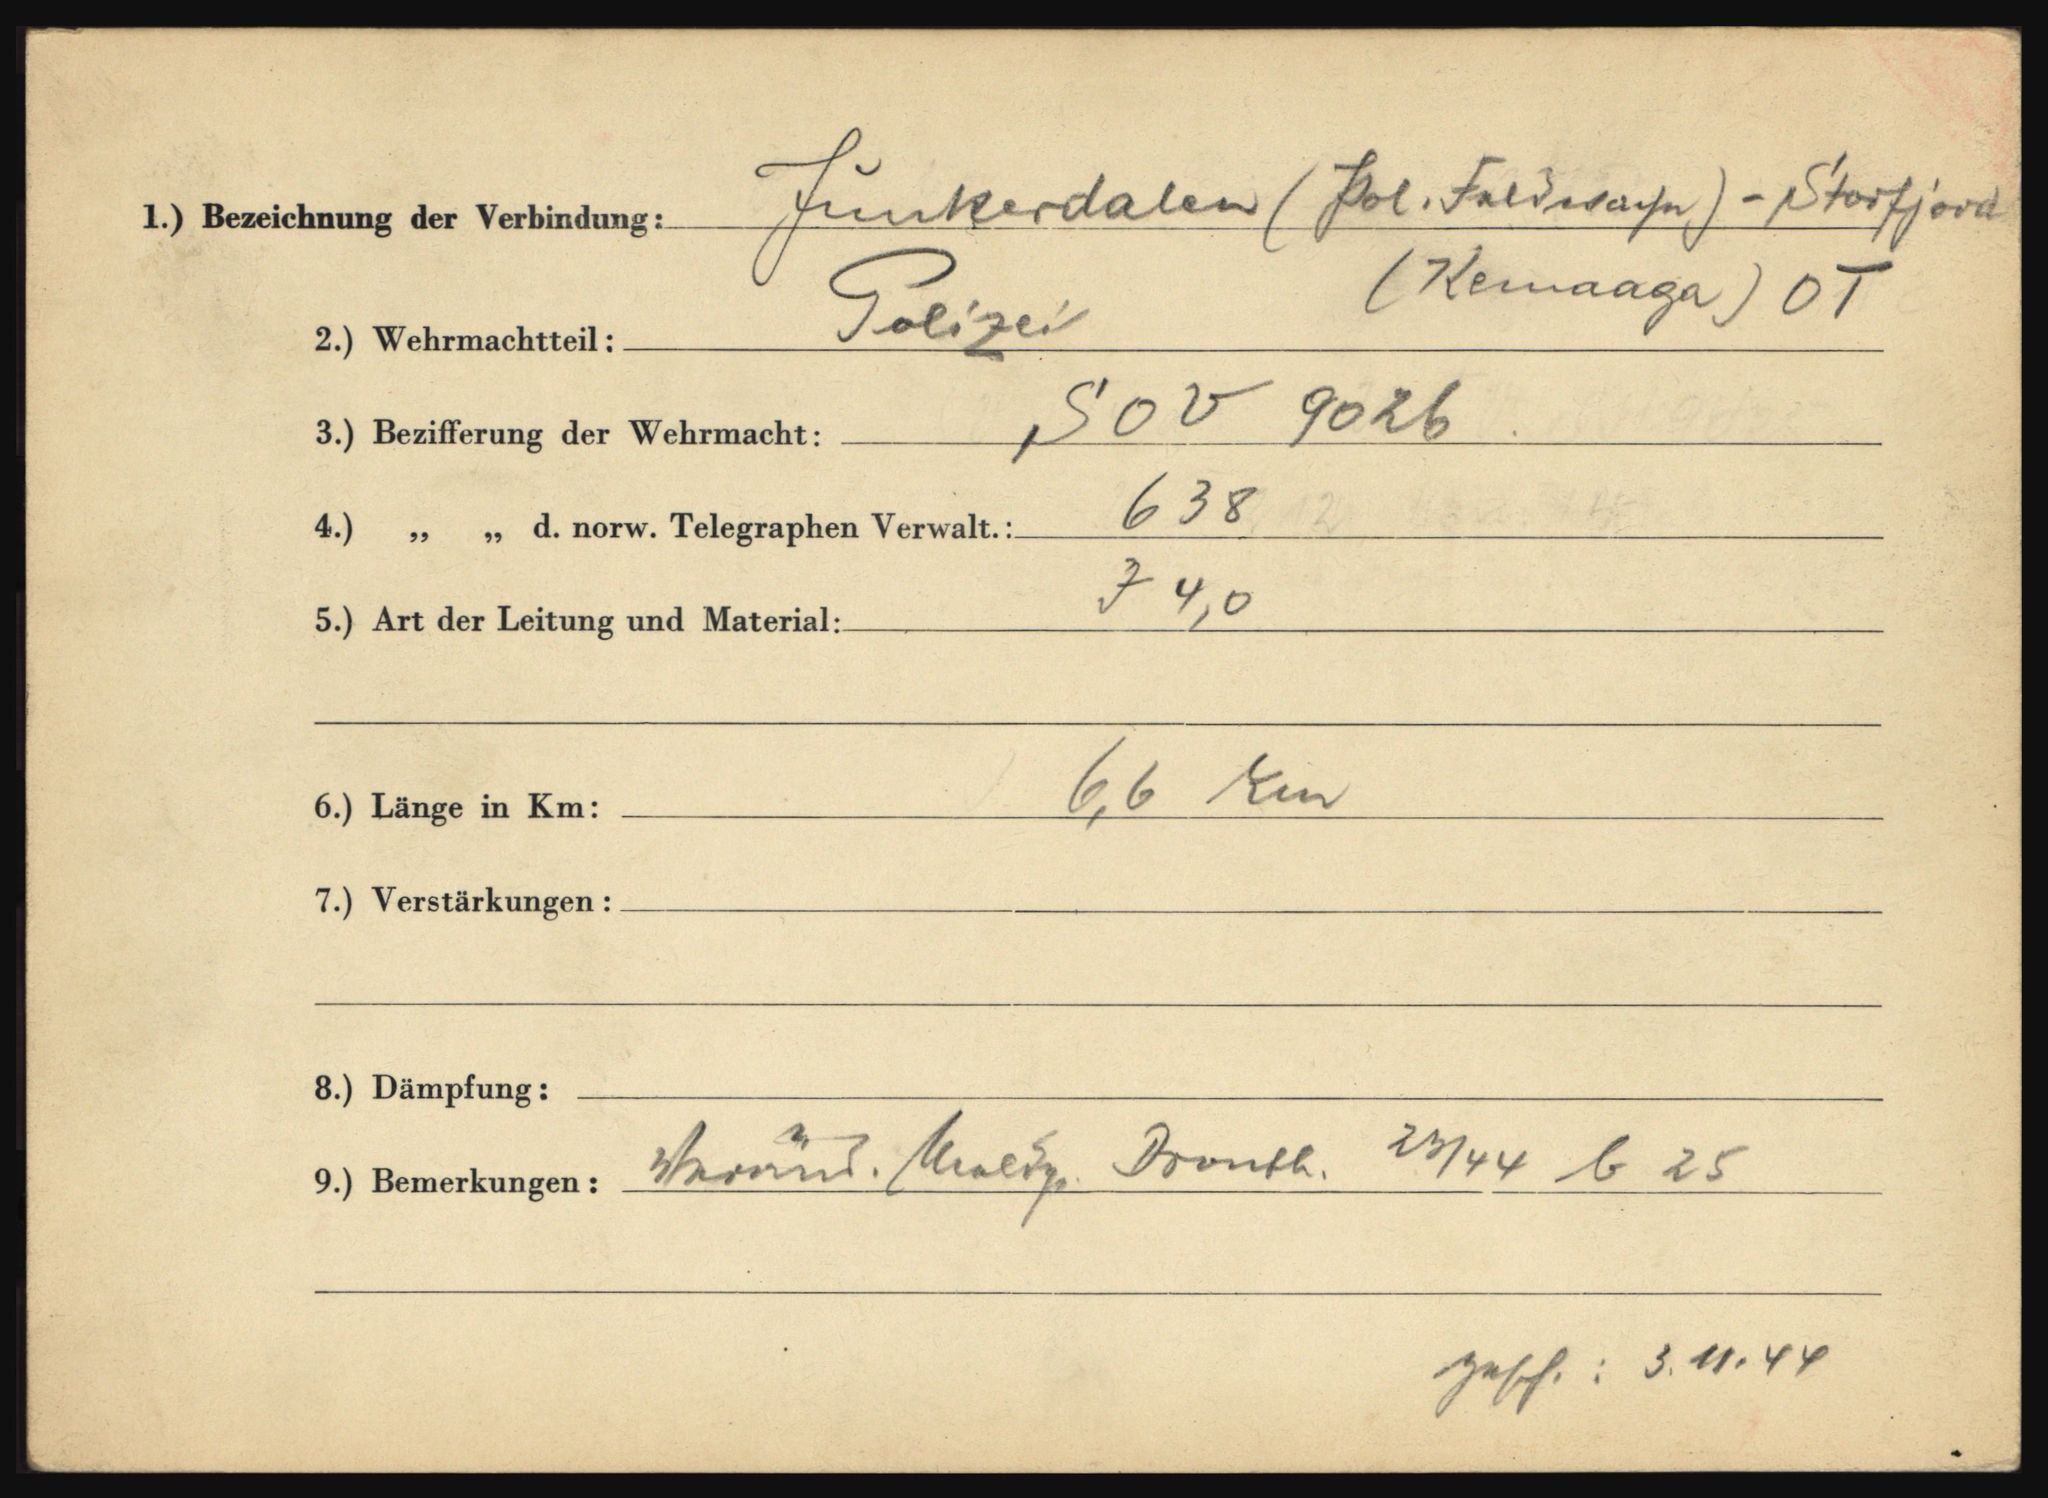 1.) Bezeichnung der Verbindung: Junkerdalen (Pol. Feldwache) - Storfjord
(Kemaaga) OT
2.) Wehrmachtteil: Polizei
3.) Bezifferung der Wehrmacht: SOV 9026
4.) „ „ d. norw. Telegraphen Verwalt.: 638
5.) Art der Leitung und Material: J 4,0
6.) Länge in Km: 6,6 Km
7.) Verstärkungen:
8.) Dämpfung:
9.) Bemerkungen: Veränd. Meldg. Dronth. 23/44 b 25
gesch.: 3.11.44